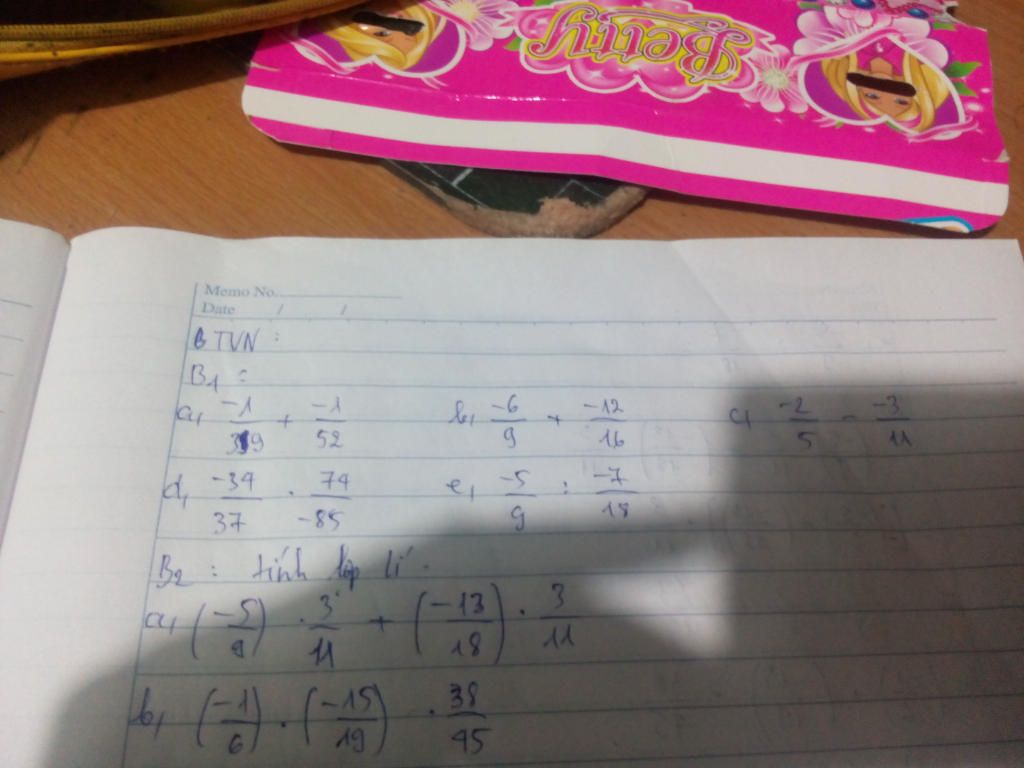 Betty
Memo No.
Date / /
BTVN :
B1 :
a, -1/39 + -1/52 b, -6/9 + -12/16 c, -2/5 - -3/11
d, -34/37 . 74/-85 e, -5/9 : -7/18
B2 : tính hợp lí .
a, (-5/9) . 3/11 + (-13/18) . 3/11
b, (-1/6) . (-15/19) . 38/45